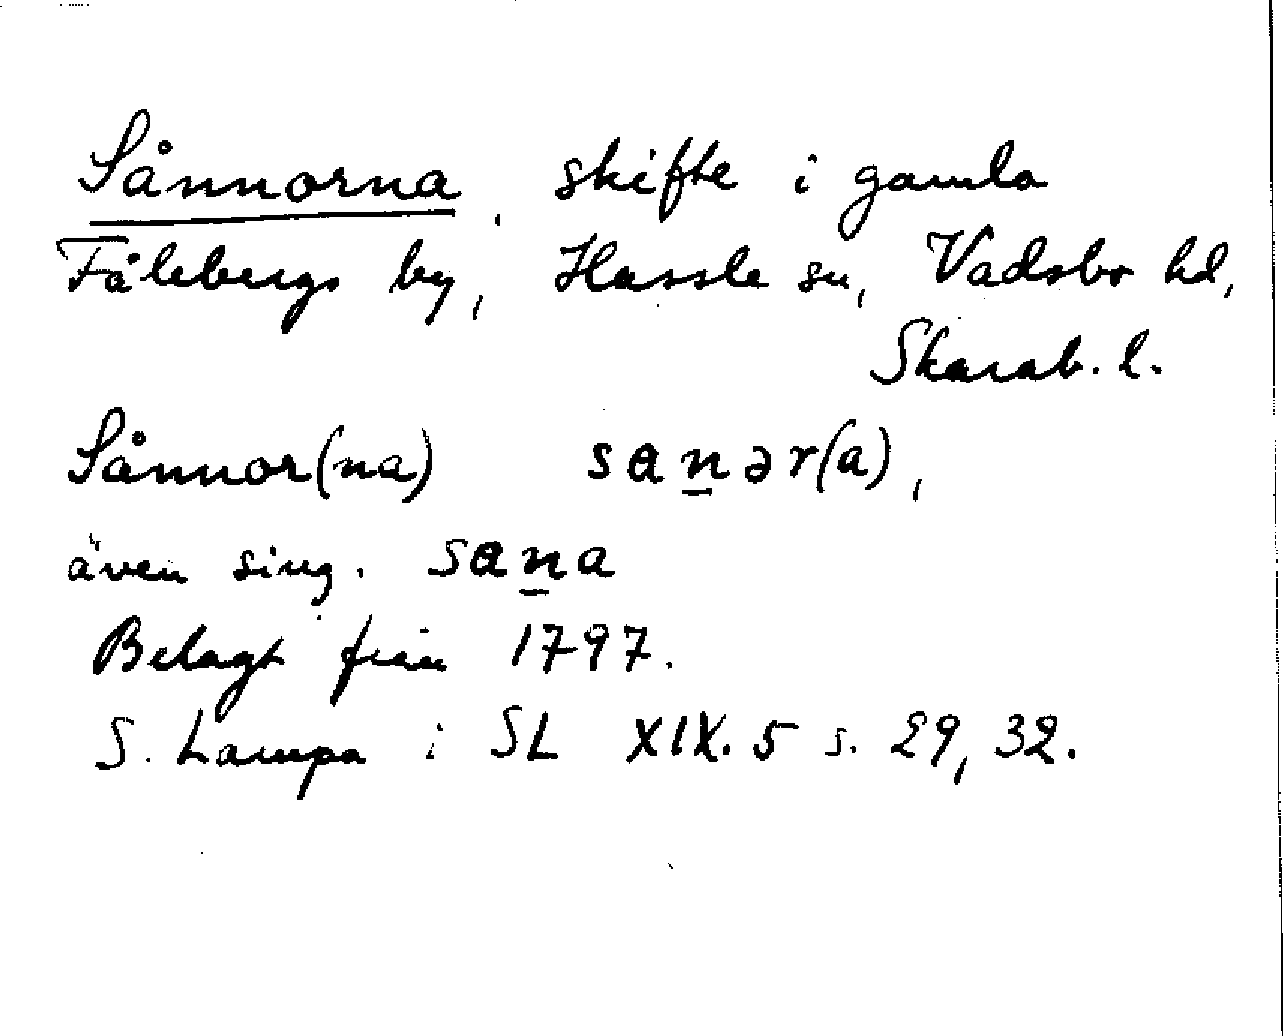 Sånnorna, skifte i gamla
Fålebergs by, Hassle sn, Vadsbo hd,
Skarab. l.
Sånnor(na) sanər(a),
även sing. sana
Belagt från 1797.
S. Lampa i SL XIX. 5 s. 29, 32.